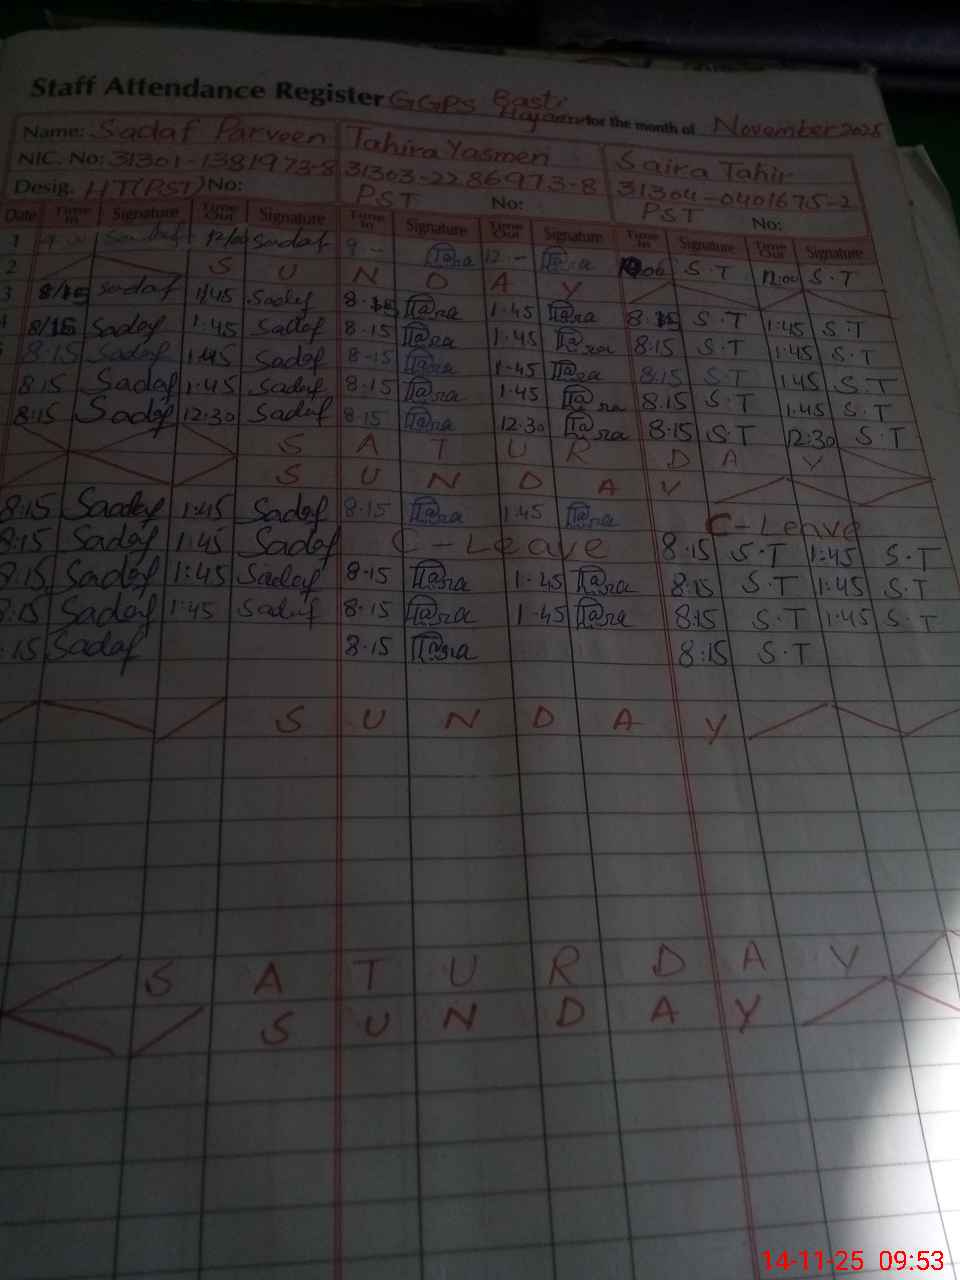 Staff Attendance Register GGPS Basti for the month of November 2025
Name: Sadaf Parveen Tahira Yasmen Saira Tahir
NIC. No: 31301-1381973-8 31303-2286973-8 31304-0401675-2
Desig. HT(PST) No: PST No: PST No:
Date Time In Signature Time Out Signature Time In Signature Time Out Signature Time In Signature Time Out Signature
1 Sadaf 12/00 Sadaf 9 -- 12 -- S.T 12:00 S.T
2 S U N D A Y
3 8/15 Sadaf 1/45 Sadaf 8.15 1.45 8.15 S.T 1:45 S.T
4 8/15 Sadaf 1:45 Sadaf 8.15 1.45 8:15 S.T 1:45 S.T
8:15 Sadaf 1:45 Sadaf 8.15 1.45 8:15 S.T 1:45 S.T
8:15 Sadaf 1:45 Sadaf 8.15 1.45 8:15 S.T 1:45 S.T
8:15 Sadaf 12:30 Sadaf 8.15 12.30 8:15 S.T 12:30 S.T
S A T U R D A Y
S U N D A Y
8:15 Sadaf 1:45 Sadaf 8.15 1.45 C-Leave
8:15 Sadaf 1:45 Sadaf C-Leave 8:15 S.T 1:45 S.T
8:15 Sadaf 1:45 Sadaf 8.15 1.45 8:15 S.T 1:45 S.T
8:15 Sadaf 1:45 Sadaf 8.15 1.45 8:15 S.T 1:45 S.T
15 Sadaf 8.15 8:15 S.T
S U N D A Y
S A T U R D A Y
S U N D A Y
14-11-25 09:53